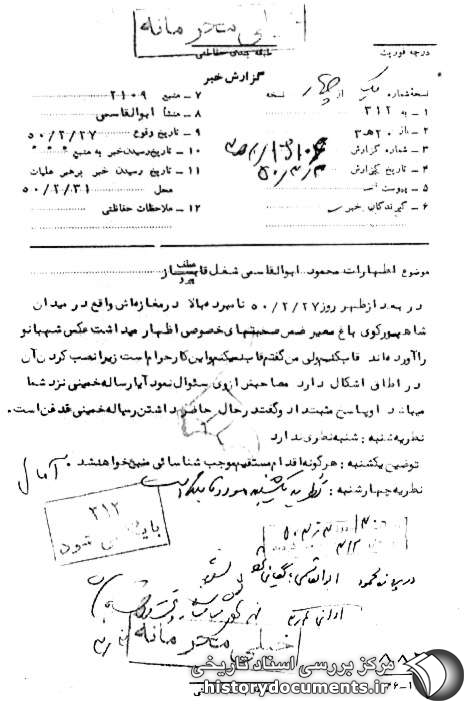 خیلی محرمانه
درجه فوریت
طبقه بندی حفاظتی
گزارش خبر
نسخه شماره یک از چهار نسخه
۱ ـ به ۳۱۲
۲ ـ از ۳هـ۲۰
۳ ـ شماره گزارش
۴ ـ تاریخ گزارش
۵ ـ پیوست
۶ ـ گیرندگان خبر
۷ ـ منبع ۲۱۰۹
۸ ـ منشأ ابوالقاسمی
۹ ـ تاریخ وقوع ۵۰/۲/۲۷
۱۰ ـ تاریخ رسیدن خبر به منبع
۱۱ ـ تاریخ رسیدن خبر برهبر عملیات
محل ۵۰/۲/۳۱
۱۲ ـ ملاحظات حفاظتی
موضوع اظهارات محمود ابوالقاسمی شغل قابساز
در بعد از ظهر روز ۵۰/۲/۲۷ نامبرده بالا در مغازه‌اش واقع در میدان
شاهپور کوی باغ معیر ضمن صحبتهای خصوصی اظهار میداشت عکس شهبانو
را آورده‌اند قاب کنیم ولی من گفتم قاب نمیکنم و این کار حرام است زیرا نصب کردن آن
در اطاق اشکال دارد مصاحبش از وی سئوال نمود آیا رساله خمینی نزد شما
میباشد او پاسخ مثبت داد و گفت در حال حاضر داشتن رساله خمینی قدغن است.
نظریه شنبه : شنبه نظری ندارد
توضیح یکشنبه : هرگونه اقدام مستقیم موجب شناسائی منبع خواهد شد .
نظریه چهارشنبه : نظریه یکشنبه مورد تائید است
۳۱۲
بایگانی شود
خیلی محرمانه
مرکز بررسی اسناد تاریخی
www.historydocuments.ir